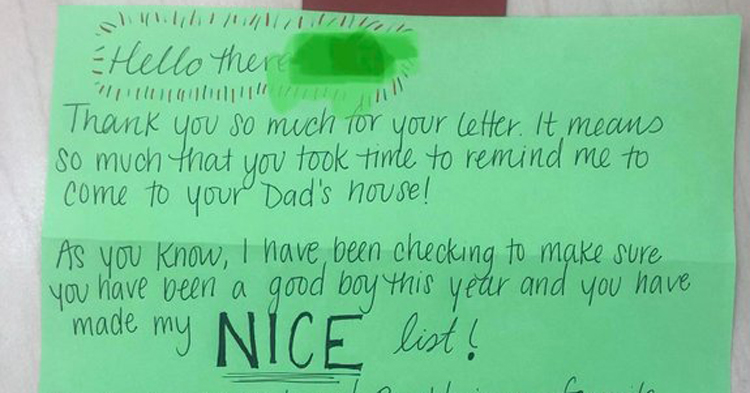 Hello there
Thank you so much for your letter. It means
so much that you took time to remind me to
come to your Dad's house!
As you know, I have been checking to make sure
you have been a good boy this year and you have
made my NICE list!